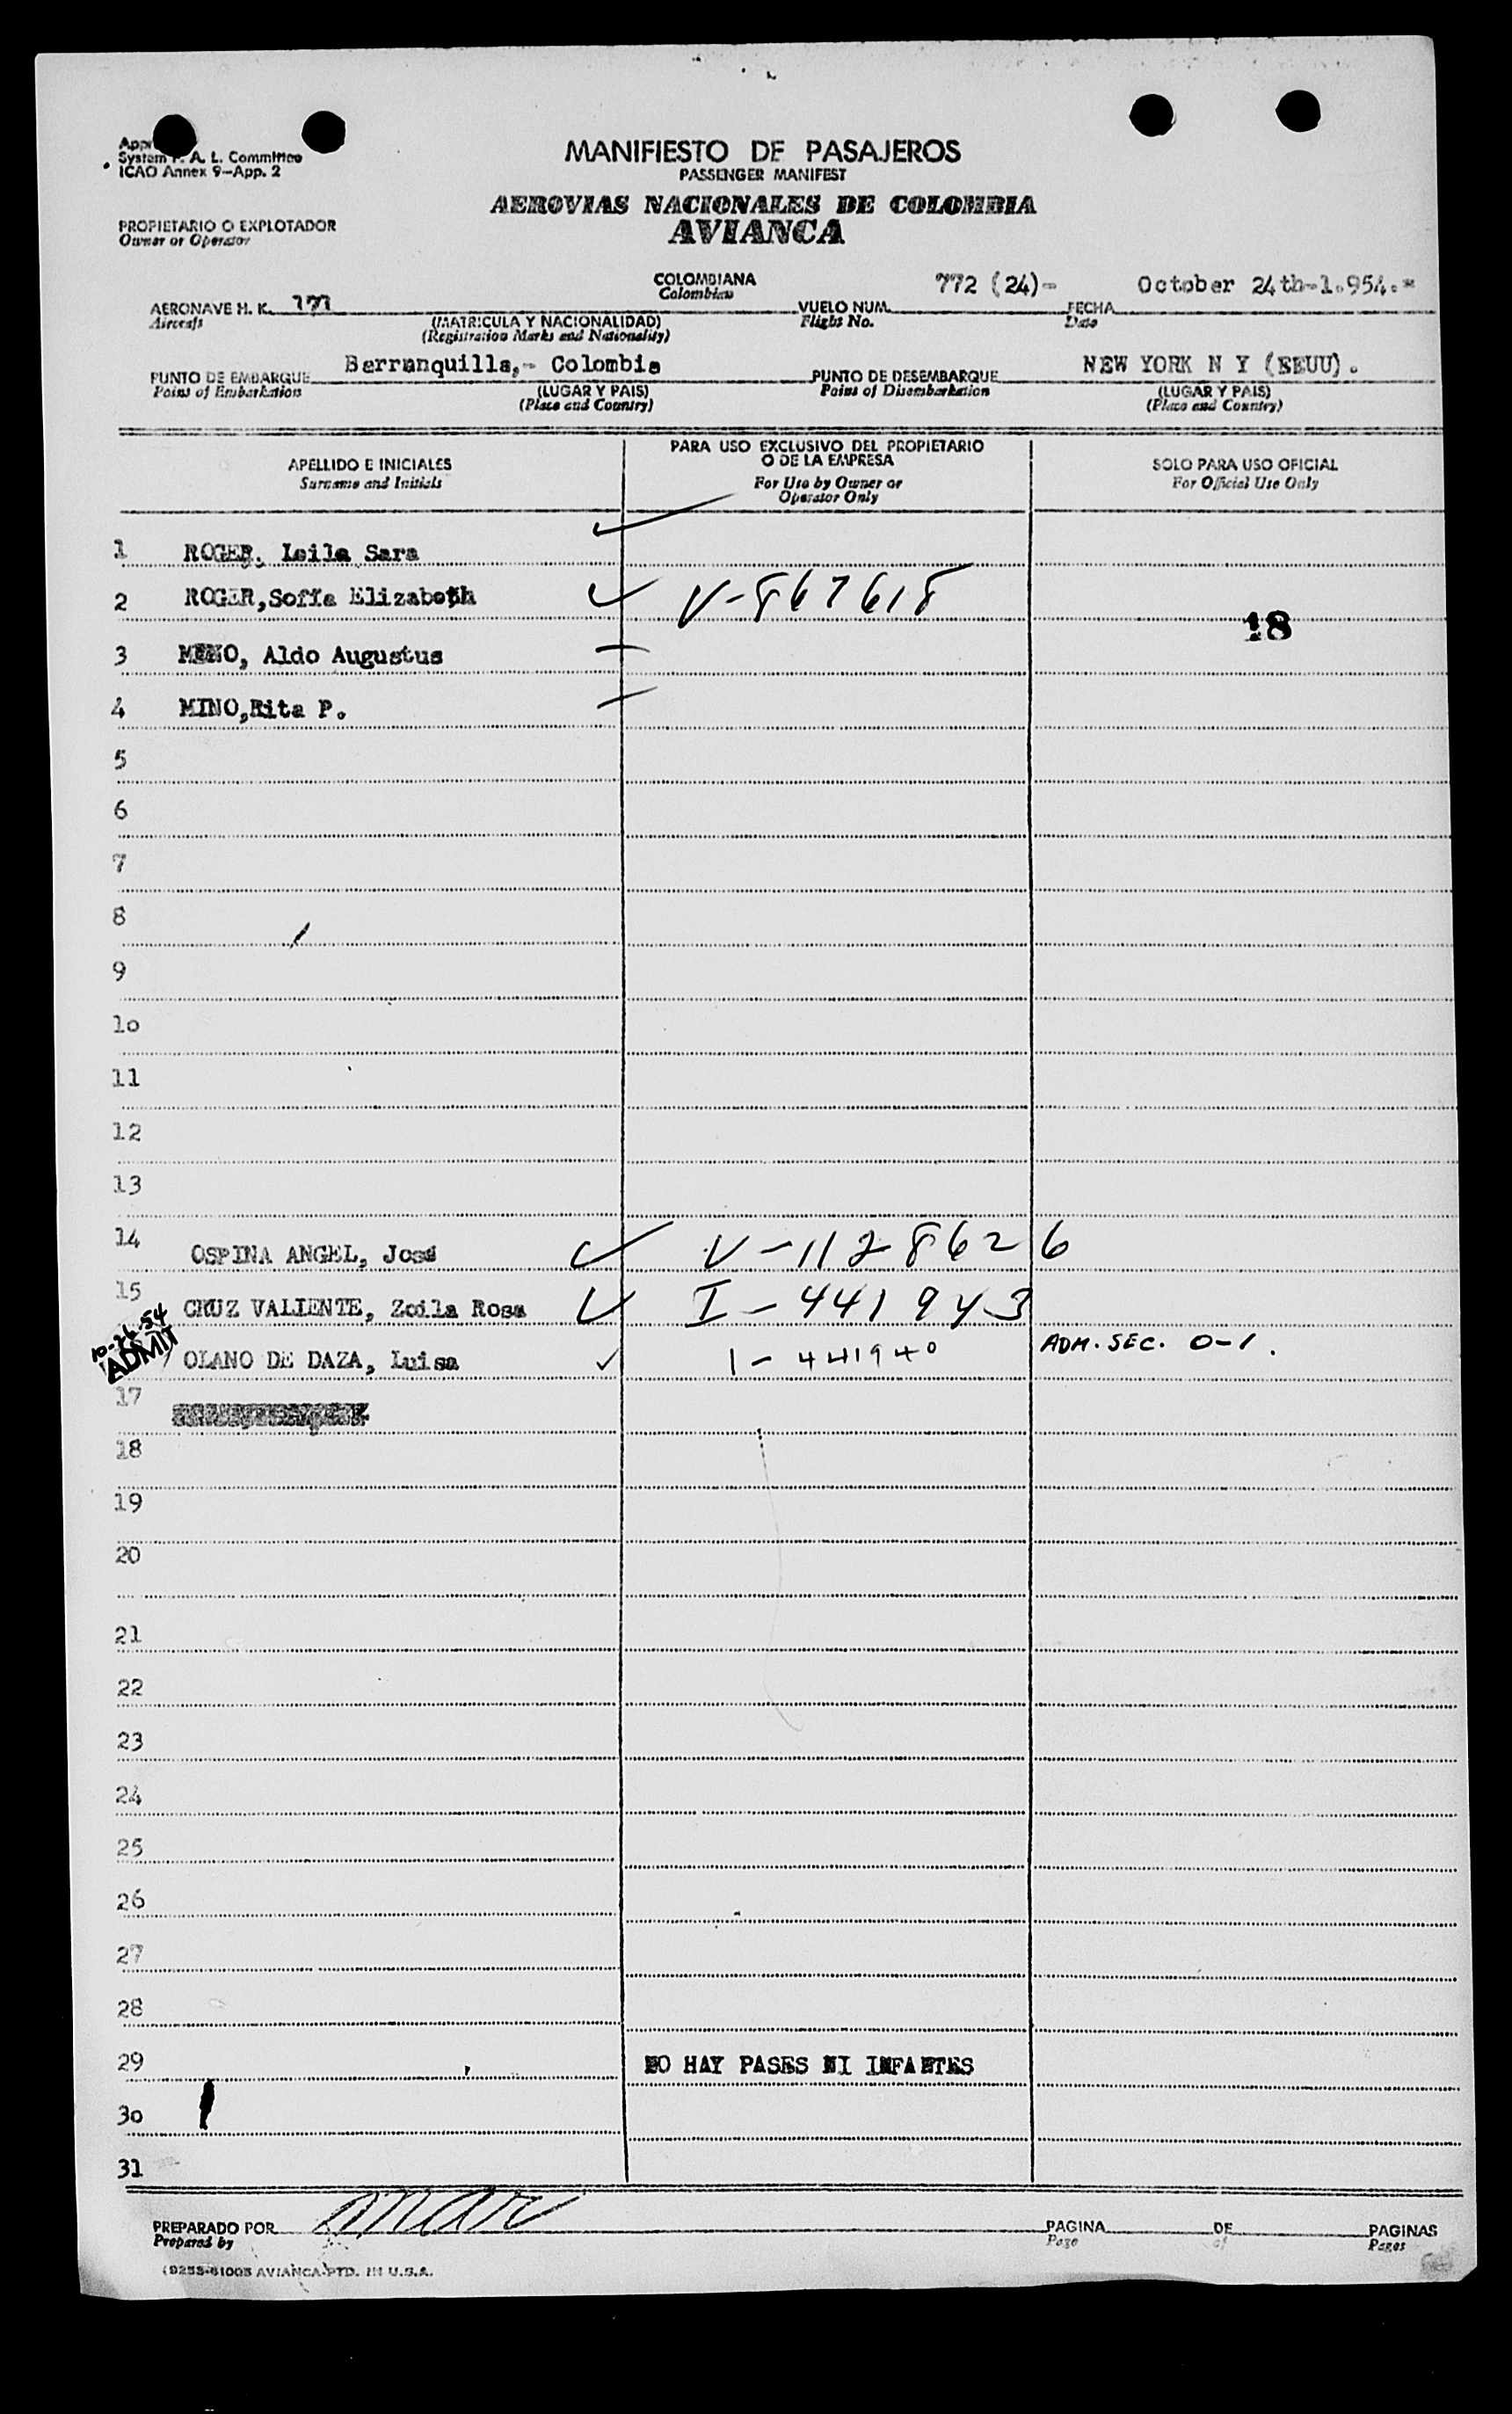 System F. A. L. Committee
ICAO Annex 9-App. 2
MANIFIESTO DE PASAJEROS
PASSENGER MANIFEST
AEROVIAS NACIONALES DE COLOMBIA
AVIANCA
PROPIETARIO O EXPLOTADOR
Owner or Operator
COLOMBIANA
Colombian
772 (24)-
October 24th-1.954.-
AERONAVE H. K. 171
Aircraft
(MATRICULA Y NACIONALIDAD)
(Registration Marks and Nationality)
VUELO NUM.
Flight No.
FECHA
Date
PUNTO DE EMBARQUE Barranquilla,- Colombia
Point of Embarkation
(LUGAR Y PAIS)
(Place and Country)
PUNTO DE DESEMBARQUE NEW YORK N Y (EEUU).
Point of Disembarkation
(LUGAR Y PAIS)
(Place and Country)
APELLIDO E INICIALES
Surname and Initials
PARA USO EXCLUSIVO DEL PROPIETARIO
O DE LA EMPRESA
For Use by Owner or
Operator Only
SOLO PARA USO OFICIAL
For Official Use Only
1 ROGER, Leila Sara
2 ROGER,Sofia Elizabeth V-867618
18
3 MINO, Aldo Augustus
4 MINO,Rita P.
5
6
7
8
9
10
11
12
13
14 OSPINA ANGEL, José V-1128626
15 CRUZ VALIENTE, Zoila Rosa I-441943
10-26-54
ADMIT
OLANO DE DAZA, Luisa I-441940 ADM. SEC. 0-1.
17
18
19
20
21
22
23
24
25
26
27
28
29 NO HAY PASES NI INFANTES
30
31
PREPARADO POR
Prepared by
PAGINA
Page
DE
of
PAGINAS
Pages
AVIANCA-PTD. IN U.S.A.